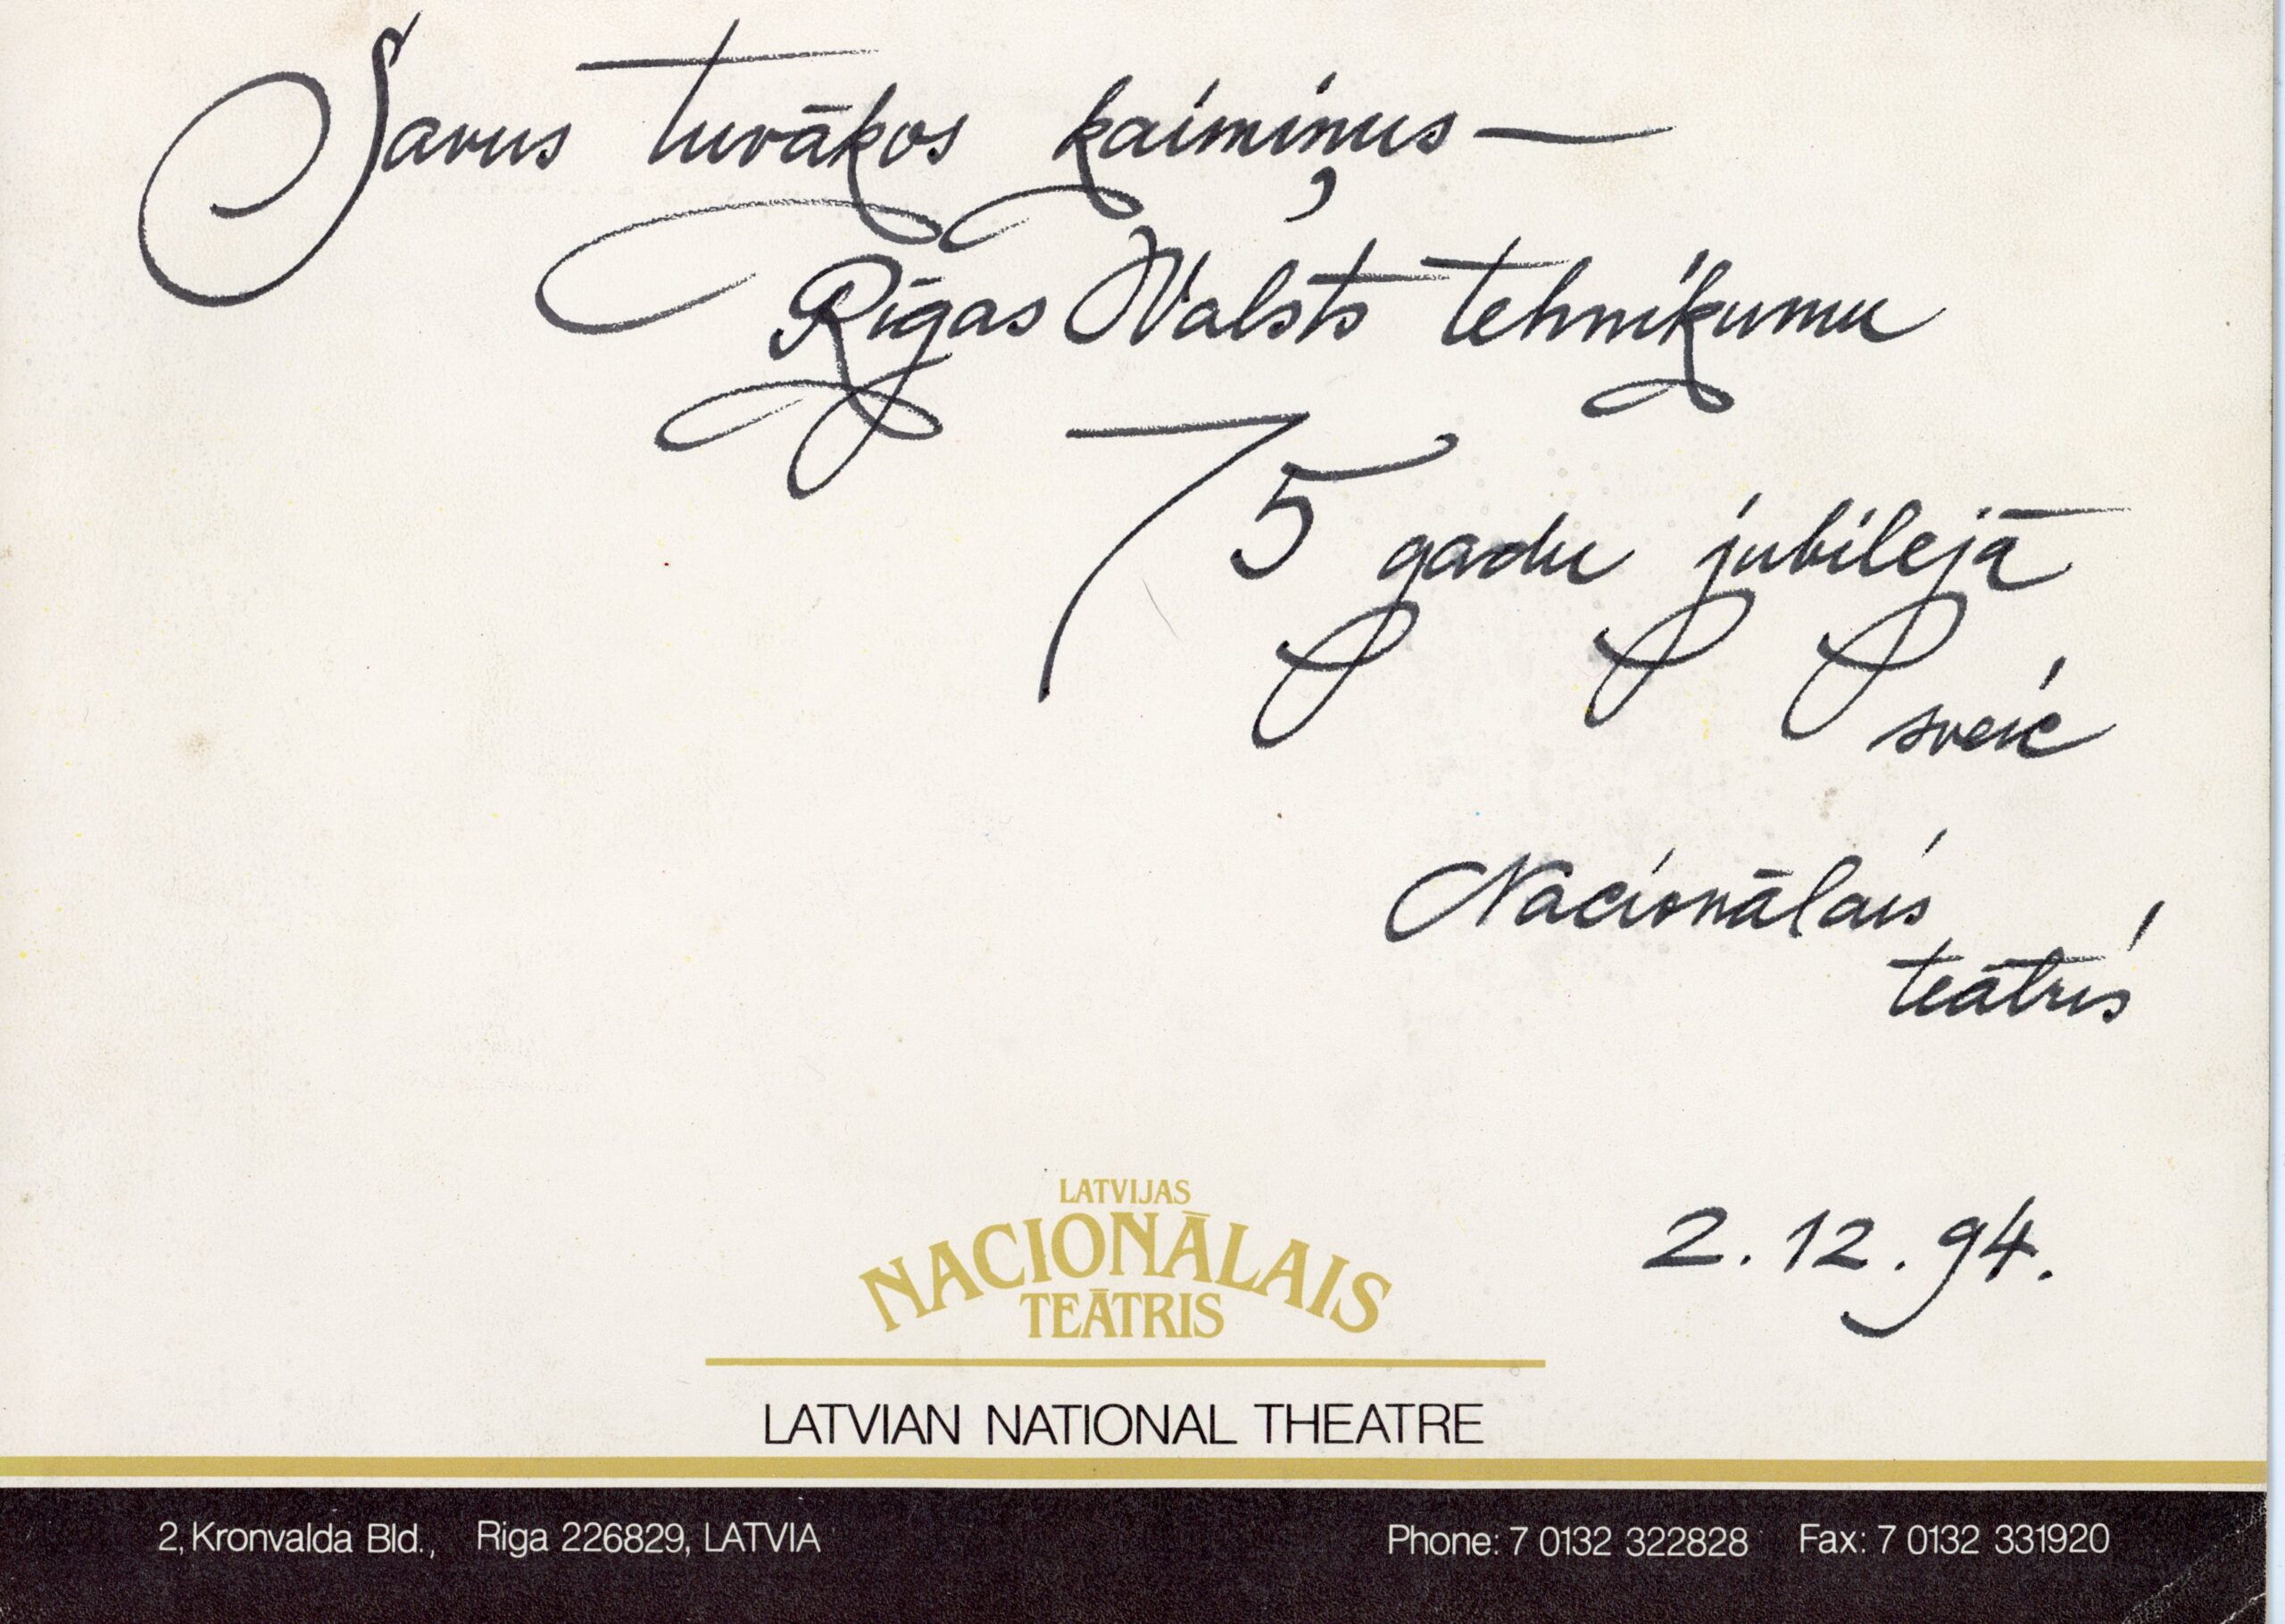 Savus tuvākos kaimiņus —
Rīgas Valsts tehnikumu
75 gadu jubilejā
sveic
Nacionālais
teātris
2.12.94.
LATVIJAS
NACIONĀLAIS
TEĀTRIS
LATVIAN NATIONAL THEATRE
2, Kronvalda Bld., Riga 226829, LATVIA
Phone: 7 0132 322828 Fax: 7 0132 331920